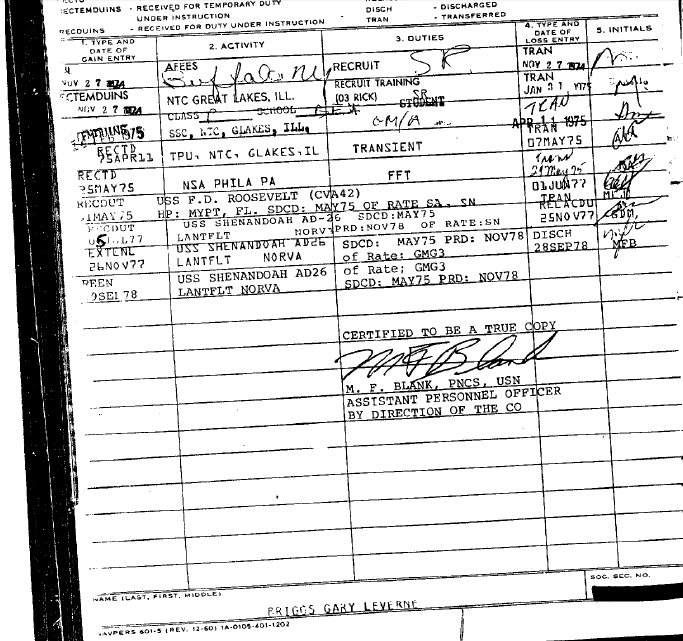 ECTEMDUINS - RECEIVED FOR TEMPORARY DUTY UNDER INSTRUCTION
RECDUINS - RECEIVED FOR DUTY UNDER INSTRUCTION
DISCH - DISCHARGED
TRAN - TRANSFERRED
1. TYPE AND DATE OF GAIN ENTRY
2. ACTIVITY
3. DUTIES
4. TYPE AND DATE OF LOSS ENTRY
5. INITIALS
NOV 27 1974
AFEES
Buffalo NY
RECRUIT SR
TRAN
NOV 27 1974
CTEMDUINS
NOV 27 1974
NTC GREAT LAKES, ILL.
RECRUIT TRAINING
(03 RICK) SR
TRAN
JAN 31 1975
CLASS SCHOOL
SSC, NTC, GLAKES, ILL.
STUDENT
GM/A
TRAN
APR 11 1975
RECTD
75APR11
TPU, NTC, GLAKES, IL
TRANSIENT
TRAN
07MAY75
RECTD
75MAY75
NSA PHILA PA
FFT
Tran
29May75
RECDUT
1MAY75
USS F.D. ROOSEVELT (CVA42)
HP: MYPT, FL. SDCD: MAY75 OF RATE SA, SN
01JUN77
TRAN
RECDUT
USS SHENANDOAH AD-26 SDCD:MAY75
LANTFLT NORV PRD:NOV78 OF RATE:SN
RELACDU
25NOV77
EXTENL
26NOV77
USS SHENANDOAH AD26
LANTFLT NORVA
SDCD: MAY75 PRD: NOV78
of Rate: GMG3
DISCH
28SEP78
MFB
REEN
9SEP78
USS SHENANDOAH AD26
LANTFLT NORVA
of Rate; GMG3
SDCD: MAY75 PRD: NOV78
CERTIFIED TO BE A TRUE COPY
M F Blank
M. F. BLANK, PNCS, USN
ASSISTANT PERSONNEL OFFICER
BY DIRECTION OF THE CO
NAME (LAST, FIRST, MIDDLE)
BRIGGS GARY LEVERNE
SOC. SEC. NO.
NAVPERS 601-5 (REV. 12-60) 1A-0105-401-1202